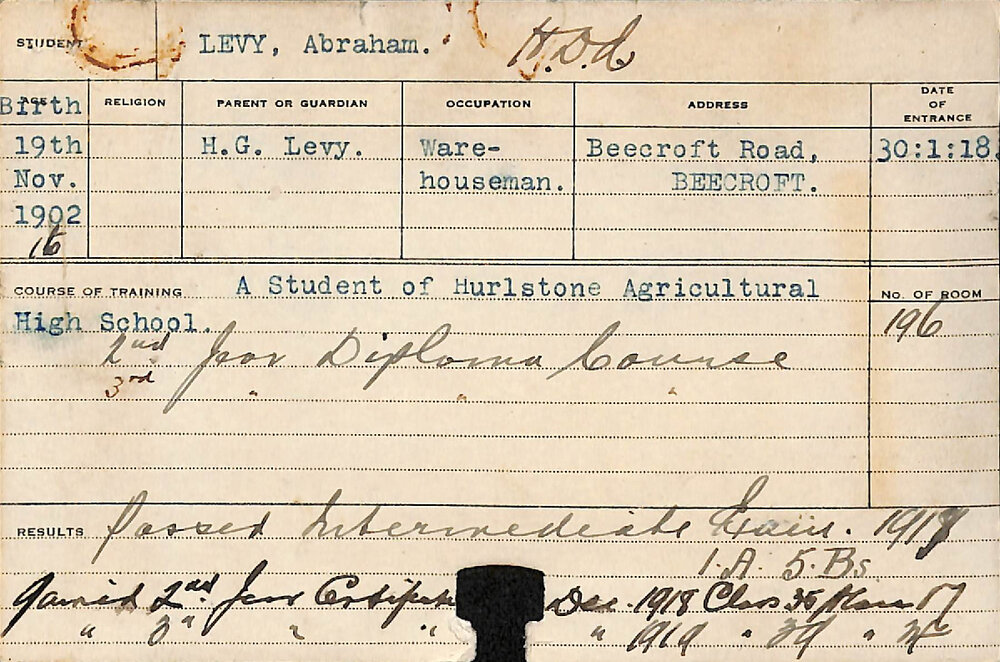 STUDENT LEVY, Abraham. H.D.A
Birth RELIGION PARENT OR GUARDIAN OCCUPATION ADDRESS DATE OF ENTRANCE
19th H.G. Levy. Ware- Beecroft Road, 30:1:18.
Nov. houseman. BEECROFT.
1902
16
COURSE OF TRAINING A Student of Hurlstone Agricultural No. OF ROOM
High School. 196
2nd Year Diploma Course
3rd " " "
RESULTS Passed Intermediate Exam. 1917
1.A. 5.Bs
Gained 2nd Year Certificate Dec. 1918 Class 35 Place 17
" 3rd " " " 1919 " 39 "